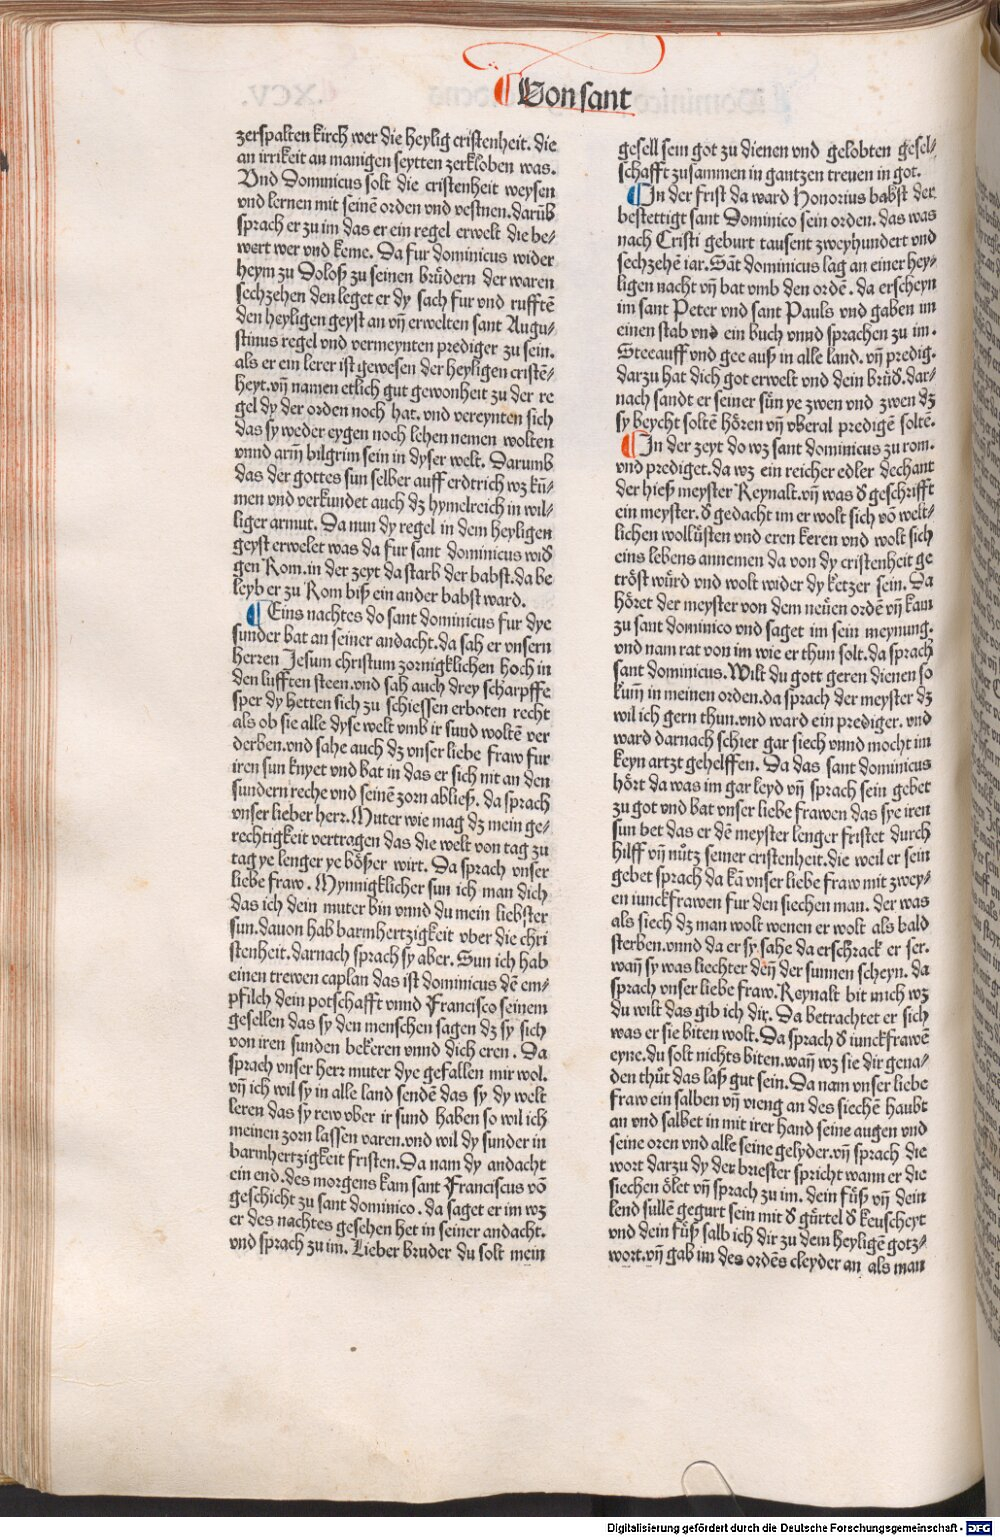 ¶Von sant
zerspalten kirch wer die heylig cristenheit. die
an irrikeit an manigen seytten zerkloben was.
Vnd Dominicus solt die cristenheit weysen
vnd lernen mit seinē orden vnd vestnen. darūb
sprach er zu im das er ein regel erwelt die be-
wert wer vnd keme. Da fur dominicus wider
heym zu Dolosz zu seinen brüdern der waren
sechzehen den leget er dy sach fur vnd rufftē
den heyligen geyst an vn̄ erwelten sant Augu-
stinus regel vnd vermeynten prediger zu sein.
als er ein lerer ist gewesen der heyligen cristē-
heyt. vn̄ namen etlich gut gewonheit zu der re
gel dy der orden noch hat. vnd vereynten sich
das sy weder eygen noch lehen nemen wolten
vnnd arm̄ bilgrim sein in dyser welt. Darumb
das der gottes sun selber auff erdtrich wz kū-
men vnd verkundet auch dz hymelreich in wil-
liger armut. Da nun dy regel in dem heyligen
geyst erwelet was da fur sant dominicus wid̄
gen Rom. in der zeyt da starb der babst. da be
leyb er zu Rom bisz ein ander babst ward.
¶ Eins nachtes do sant dominicus fur dye
sunder bat an seiner andacht. da sah er vnsern
herren Jesum christum zornigklichen hoch in
den lufften steen. vnd sah auch drey scharpffe
sper dy hetten sich zu schiessen erboten recht
als ob sie alle dyse welt vmb ir sund woltē ver
derben. vnd sahe auch dz vnser liebe fraw fur
iren sun knyet vnd bat in das er sich nit an den
sundern reche vnd seinē zorn abliesz. da sprach
vnser lieber herr. Muter wie mag dz mein ge-
rechtigkeit vertragen das die welt von tag zu
tag ye lenger ye böszer wirt. Da sprach vnser
liebe fraw. Mynnigklicher sun ich man dich
das ich dein muter bin vnnd du mein liebster
sun. dauon hab barmhertzigkeit vber die chri
stenheit. darnach sprach sy aber. Sun ich hab
einen trewen caplan das ist dominicus dē em-
pfilch dein potschafft vnnd Francisco seinem
gesellen das sy den menschen sagen dz sy sich
von iren sunden bekeren vnnd dich eren. Da
sprach vnser herr muter dye gefallen mir wol.
vn̄ ich wil sy in alle land sendē das sy dy welt
leren das sy rew vber ir sund haben so wil ich
meinen zorn lassen varen. vnd wil dy sunder in
barmhertzigkeit fristen. Da nam dy andacht
ein end. des morgens kam sant Franciscus vō
geschicht zu sant dominico. da saget er im wz
er des nachtes gesehen het in seiner andacht.
vnd sprach zu im. Lieber bruder du solt mein
gesell sein got zu dienen vnd gelobten gesel-
schafft zusammen in gantzen treuen in got.
¶ In der frist da ward Honorius babst der
bestettigt sant Dominico sein orden. das was
nach Cristi geburt tausent zweyhundert vnd
sechzehē iar. Sāt dominicus lag an einer hey-
ligen nacht vn̄ bat vmb den ordē. da erscheyn
im sant Peter vnd sant Pauls vnd gaben im
einen stab vnd ein buch vnnd sprachen zu im.
Stee auff vnd gee ausz in alle land. vn̄ predig.
darzu hat dich got erwelt vnd dein brūd̄. dar-
nach sandt er seiner sün ye zwen vnd zwen dz
sy beycht soltē hören vn̄ vberal predigē soltē.
¶ In der zeyt do wz sant dominicus zu rom.
vnd prediget. da wz ein reicher edler dechant
der hiesz meyster Reynalt. vn̄ was d̄ geschrifft
ein meyster. d̄ gedacht im er wolt sich vō welt-
lichen wollüsten vnd eren keren vnd wolt sich
eins lebens annemen da von dy cristenheit ge
tröst würd vnd wolt wider dy ketzer sein. Da
höret der meyster von dem neüen ordē vn̄ kam
zu sant dominico vnd saget im sein meynung.
vnd nam rat von im wie er thun solt. da sprach
sant dominicus. Wilt du gott geren dienen so
kum̄ in meinen orden. da sprach der meyster dz
wil ich gern thun. vnd ward ein prediger. vnd
ward darnach schier gar siech vnnd mocht im
keyn artzt gehelffen. Da das sant dominicus
hört da was im gar leyd vn̄ sprach sein gebet
zu got vnd bat vnser liebe frawen das sye iren
sun bet das er dē meyster lenger fristet durch
hilff vn̄ nütz seiner cristenheit. die weil er sein
gebet sprach da kā vnser liebe fraw mit zwey-
en iunckfrawen fur den siechen man. der was
als siech dz man wolt wenen er wolt als bald
sterben. vnnd da er sy sahe da erschrack er ser.
wan̄ sy was liechter den̄ der sunnen scheyn. da
sprach vnser liebe fraw. Reynalt bit mich wz
du wilt das gib ich dir. Da betrachtet er sich
was er sie biten wolt. Da sprach d̄ iunckfrawē
eyne. du solt nichts biten. wan̄ wz sie dir gena-
den thüt das lasz gut sein. Da nam vnser liebe
fraw ein salben vn̄ vieng an des siechē haubt
an vnd salbet in mit irer hand seine augen vnd
seine oren vnd alle seine gelyder. vn̄ sprach die
wort darzu dy der briester spricht wann er die
siechen ölet vn̄ sprach zu im. dein füsz vn̄ dein
lend sullē gegurt sein mit d̄ gürtel d̄ keuscheyt
vnd dein füsz salb ich dir zu dem heyligē gotz-
wort. vn̄ gab im des ordēs cleyder an als man
Digitalisierung gefördert durch die Deutsche Forschungsgemeinschaft - DFG